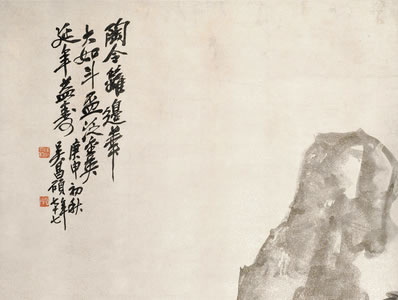 陶令籬邊華
大如斗盃泛靈英
延年益壽
庚申初秋
吳昌碩年七十七